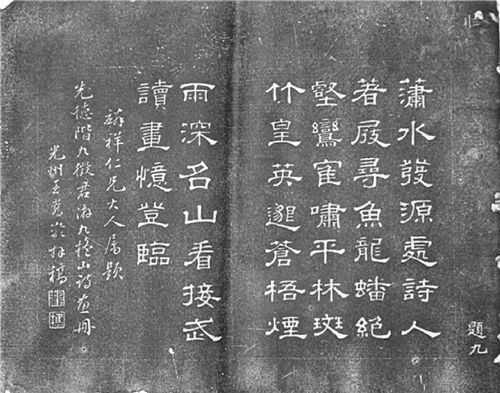 題九
瀟水發源處詩人
著屐尋魚龍蟠絕
壑鸞寉嘯平林斑
竹皇英邈蒼梧煙
雨深名山看接武
讀畫憶登臨
祥仁兄大人屬題
先德階九徵君游九疑山詩畫冊
光州王拜稿